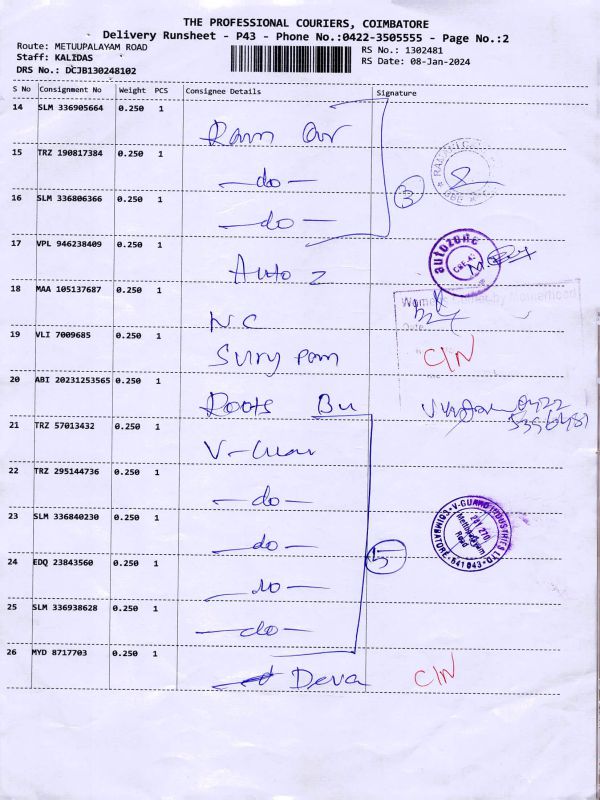 THE PROFESSIONAL COURIERS, COIMBATORE
Delivery Runsheet - P43 - Phone No.:0422-3505555 - Page No.:2
Route: METUUPALAYAM ROAD
RS No.: 1302481
Staff: KALIDAS
RS Date: 08-Jan-2024
DRS No.: DCJB130248102
S No Consignment No Weight PCS Consignee Details Signature
14 SLM 336905664 0.250 1
15 TRZ 190817384 0.250 1
- do -
16 SLM 336806366 0.250 1
3
- do -
17 VPL 946238409 0.250 1
autozone
Auto Z
18 MAA 105137687 0.250 1
NC
19 VLI 7009685 0.250 1
C/N
20 ABI 20231253565 0.250 1
Roots
0422
21 TRZ 57013432 0.250 1
22 TRZ 295144736 0.250 1
- do -
23 SLM 336840230 0.250 1
V-GUARD INDUSTRIES LTD COIMBATORE - 641 043
241 270
Metthupalayam
Road
- do -
24 EDQ 23843560 0.250 1
5
- do -
25 SLM 336938628 0.250 1
- do -
26 MYD 8717703 0.250 1
Deva C/N